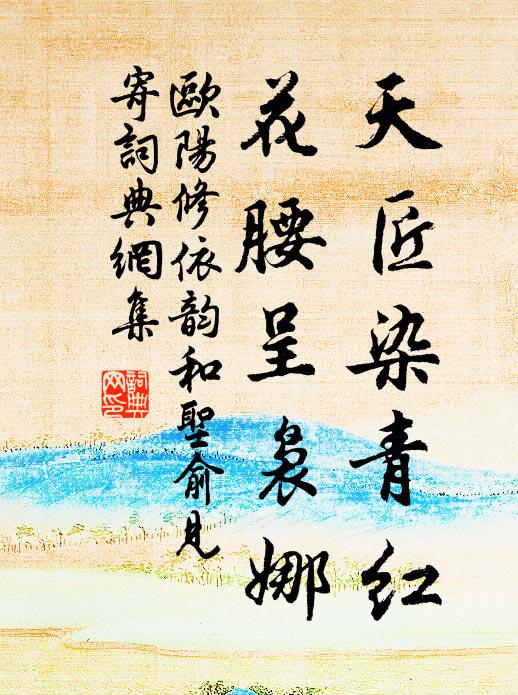 天匠染青红
花腰呈袅娜
歐陽修依韵和聖俞見
寄詞典網集
詞典
网印